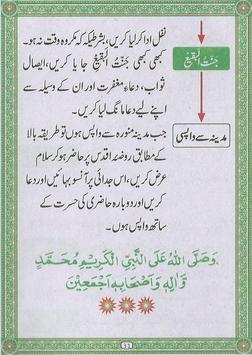 نفل ادا کر لیا کریں، بشرطیکہ مکروہ وقت نہ ہو۔
جنّتُ البقیع
کبھی کبھی جنّتُ البقیع جایا کریں، ایصال
ثواب، دعاءِ مغفرت اور ان کے وسیلہ سے
اپنے لیے دعا مانگ لیا کریں۔
مدینہ سے واپسی
جب مدینہ منورہ سے واپس ہوں تو طریقہ بالا
کے مطابق روضۂ اقدس پر حاضر ہو کر سلام
عرض کریں، اس جدائی پر آنسو بہائیں اور دعا
کریں اور دوبارہ حاضری کی حسرت کے
ساتھ واپس ہوں۔
وَصَلَّى اللهُ عَلَى النَّبِيِّ الْكَرِيْمِ مُحَمَّدٍ
وَّاٰلِهٖ وَاَصْحَابِهٖ اَجْمَعِيْنَ